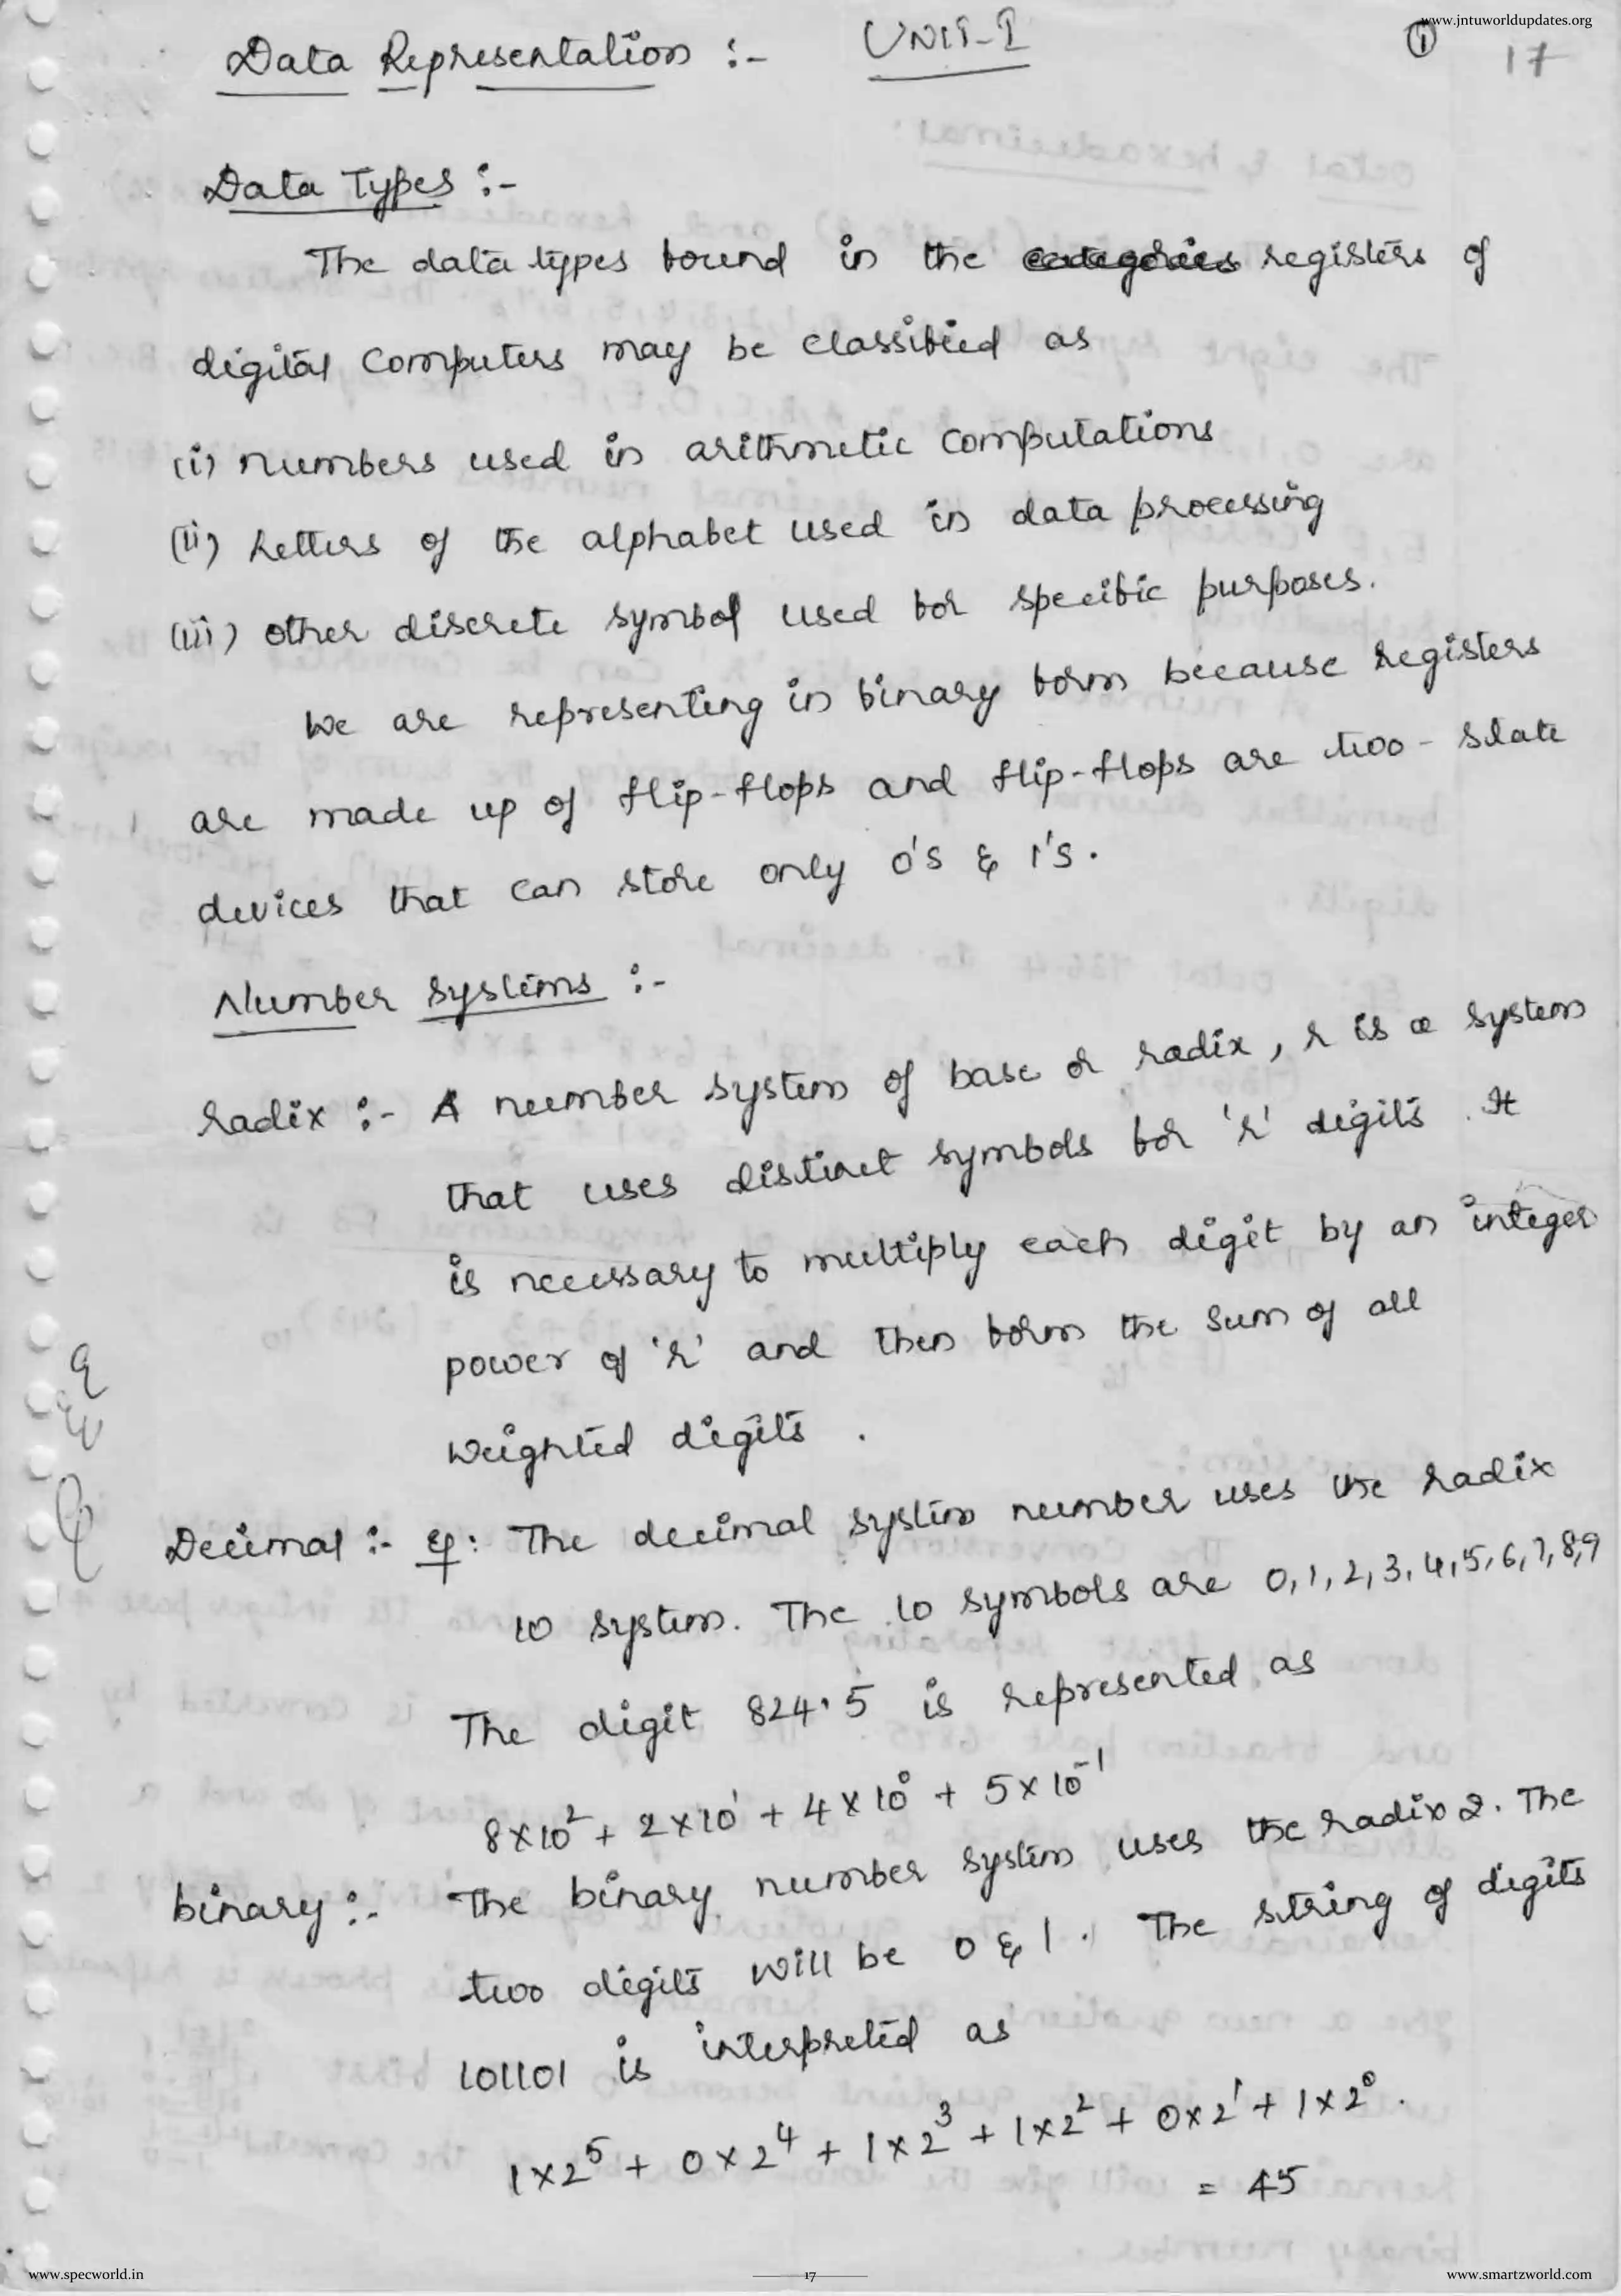 www.jntuworldupdates.org
Data Representation :- UNIT-I ① 17
Data Types :-
The data types found in the categories registers of
digital computers may be classified as
(i) numbers used in arithmetic computations
(ii) letters of the alphabet used in data processing
(iii) other discrete symbol used for specific purposes.
we are representing in binary form because registers
are made up of flip-flops and flip-flops are two-state
devices that can store only 0's & 1's.
Number systems :-
radix :- A number system of base or radix, r is a system
that uses distinct symbols for 'r' digits. It
is necessary to multiply each digit by an integer
power of 'r' and then form the sum of all
weighted digits.
Decimal :- Eg: The decimal system number uses the radix
10 system. The 10 symbols are 0,1,2,3,4,5,6,7,8,9
The digit 824.5 is represented as
8×10² + 2×10¹ + 4×10⁰ + 5×10⁻¹
binary :- The binary number system uses the radix 2. The
two digits will be 0 & 1. The string of digits
101101 is interpreted as
1×2⁵ + 0×2⁴ + 1×2³ + 1×2² + 0×2¹ + 1×2⁰.
= 45
www.specworld.in 17 www.smartzworld.com